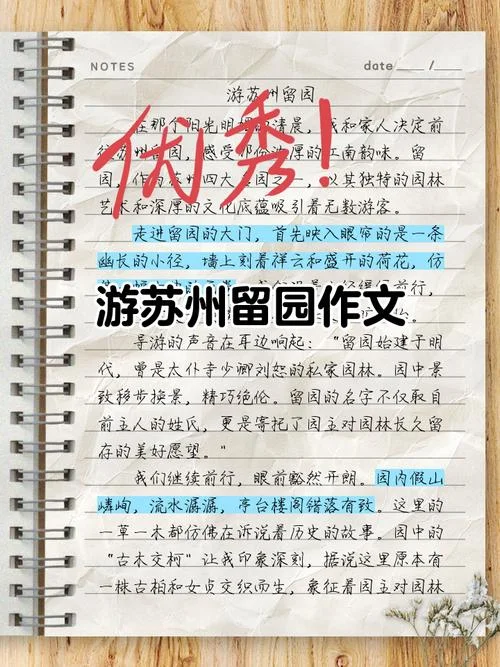 NOTES
date ___ / ___
游苏州留园
优秀!
在那个阳光明媚的清晨，我和家人决定前
往苏州留园，感受那份浓厚的江南韵味。留
园，作为苏州四大名园之一，以其独特的园林
艺术和深厚的文化底蕴吸引着无数游客。
走进留园的大门，首先映入眼帘的是一条
幽长的小径，墙上刻着祥云和盛开的荷花，仿
前行，
游苏州留园作文
导游的声音在耳边响起："留园始建于明
代，曾是太仆寺少卿刘恕的私家园林。园中景
致移步换景，精巧绝伦。留园的名字不仅取自
前主人的姓氏，更是寄托了园主对园林长久留
存的美好愿望。"
我们继续前行，眼前豁然开朗。园内假山
嶙峋，流水潺潺，亭台楼阁错落有致。这里的
一草一木都仿佛在诉说着历史的故事。园中的
"古木交柯"让我印象深刻，据说这里原本有
一株古柏和女贞交织而生，象征着园主对园林